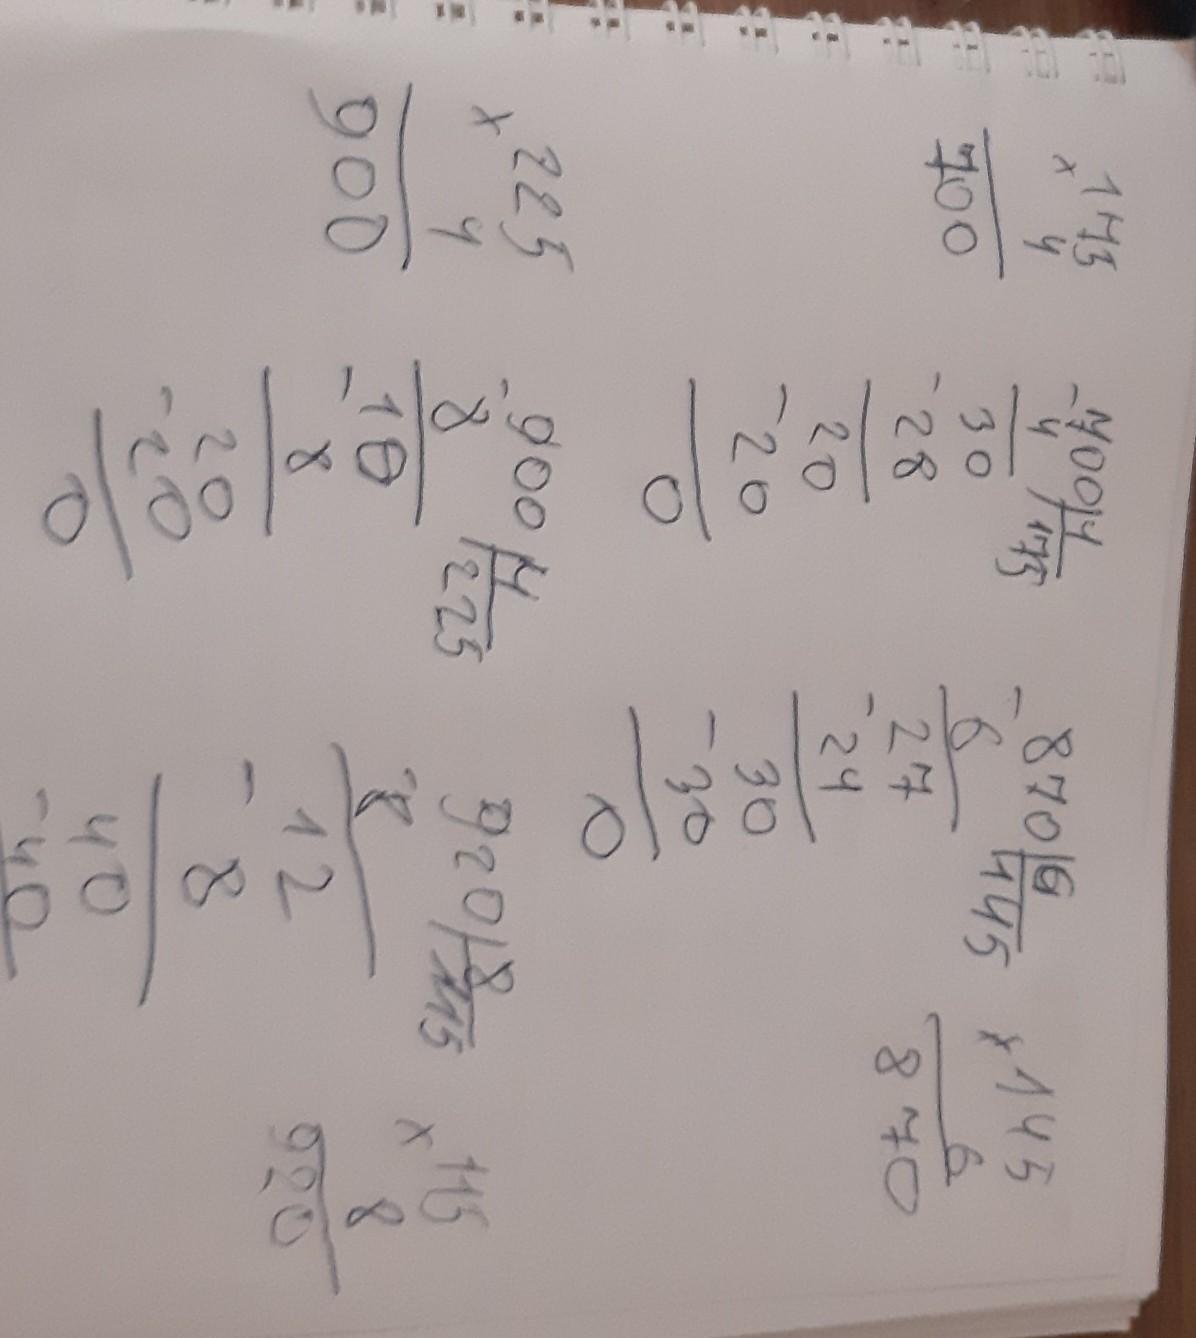 175
x 4
700
-700|4
4 175
30
-28
20
-20
0
-870|6
6 145
27
-24
30
-30
0
x145
6
870
x225
4
900
-900|4
8 225
-10
8
20
-20
0
920|8
-8 115
12
-8
40
-40
x115
8
920